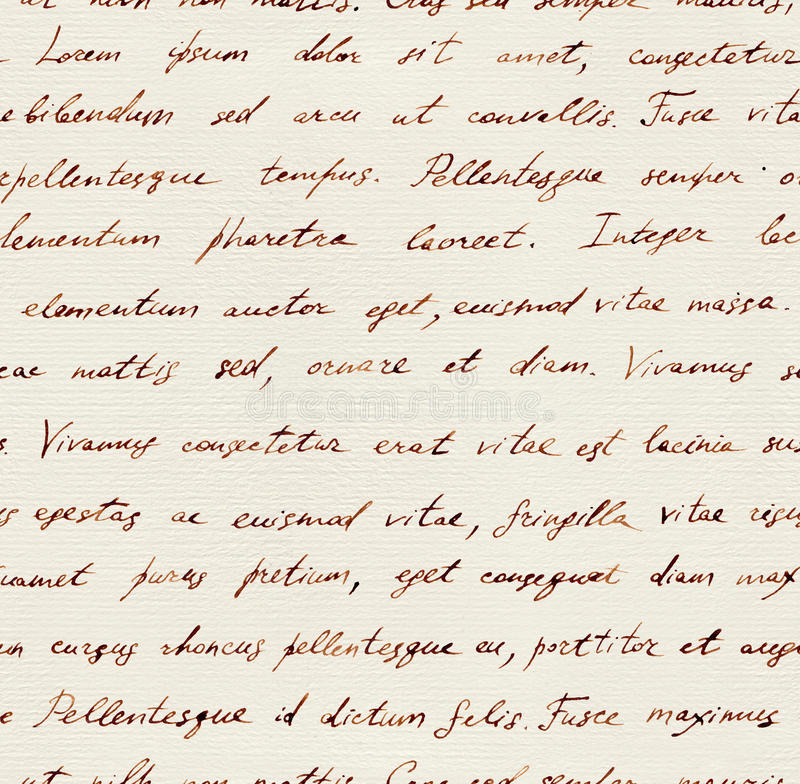 ut nibh non mattis. Cras sed semper mauris,
Lorem ipsum dolor sit amet, consectetur
e bibendum sed arcu ut convallis. Fusce vita
rpellentesque tempus. Pellentesque semper o
lementum pharetra laoreet. Integer lec
elementum auctor eget, euismod vitae massa.
cac mattis sed, ornare et diam. Vivamus s
dreamstime.com
s. Vivamus consectetur erat vitae est lacinia sus
us egestas ac euismod vitae, fringilla vitae risus
uamet purus pretium, eget consequat diam max
un cursus rhoncus pellentesque eu, porttitor et augu
e Pellentesque id dictum felis. Fusce maximus
ut nibh non mattis. Cras sed semper mauris